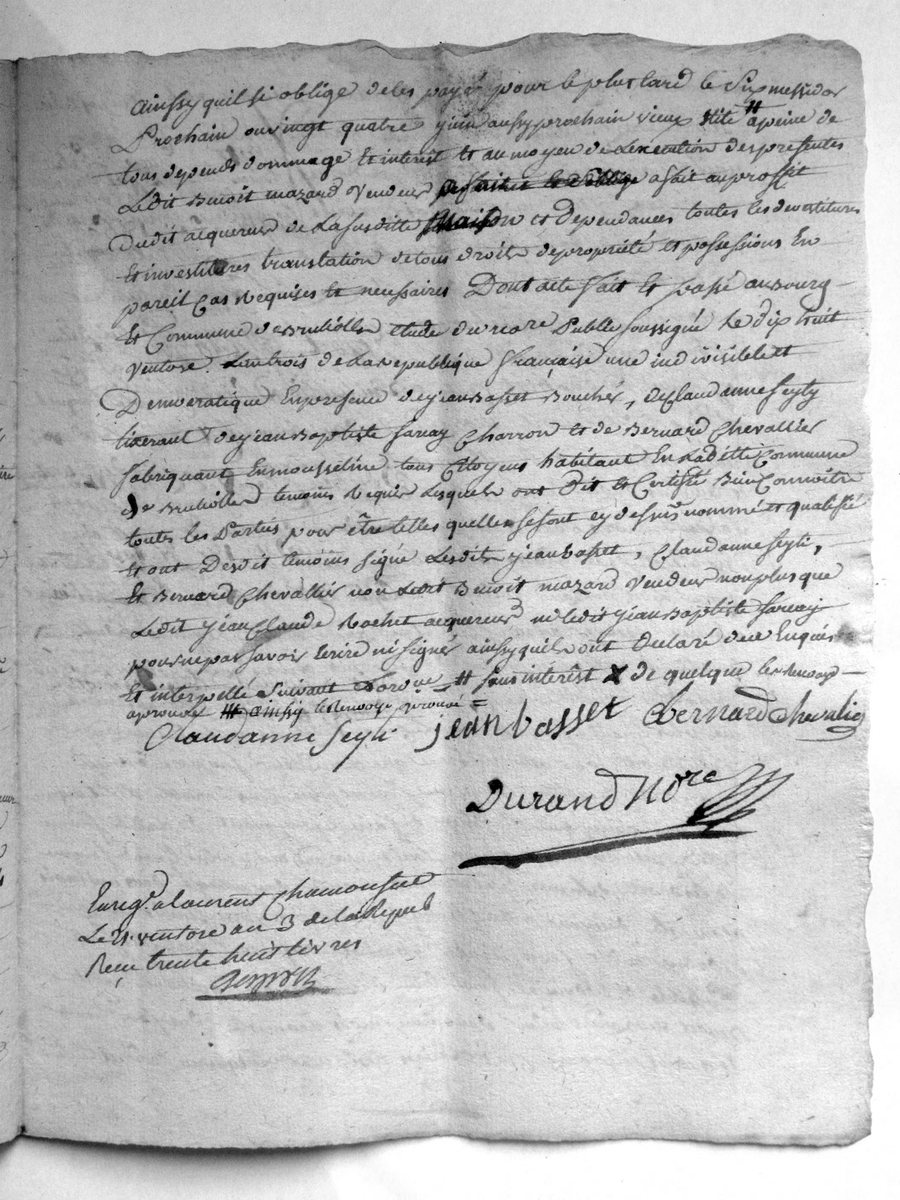 ainssy quil si oblige de les payé pour le plus tard le Six messidor
Prochain ou vingt quatre juin aussy prochain vieux stile # a peine de
tous depends dommage et interest et au moyen de Lexecution des presentes
Ledit Benoit mazard Vendeur a fait au proffit
Dudit acquereur de La susditte Maison et Dependances toutes les devestitures
Et investitures translation de tous droits de propriété et possessions En
pareil Cas Requises et necessaires Dont acte fait et passé au Bourg
Et Commune de Brullioles étude du notaire Public soussigné Le dix huit
ventose Lan trois de La Republique française une indivisible et
Democratique En presence de jean Basset Boucher, de Claudanne Seyty
tixerant de jean Baptiste farnay Charron et de Bernard Chevallier
fabriquant En mousseline tous Citoyens habitant En Laditte Commune
de Brullioles temoins Requis Lesquels ont Dit et Certifié Bien Connoitre
toutes les Parties pour être telles quelles se sont cy dessus nommé et qualifié
Et ont Desdit temoins signé Lesdits jean basset, Claudanne Seyti,
Et Bernard Chevallier non Ledit Benoit mazard Vendeur non plus que
Ledit jean Claude Rochet acquereur ni ledit jean Baptiste farnay
pour ne pas savoir Ecrire ni signer ainsy quils ont Declaré de ce Enquis
Et interpellé suivant Lordce # sans interêt X de quelque les renvoys
aprouvés ainsy le renvoye aprouvé =
Claudanne Seyti jean basset Bernard Chevalier
Durand Nore
Enregé a Laurent Chamousset
Le 21 ventose an 3 de la Repub
Reçu trente huit livres